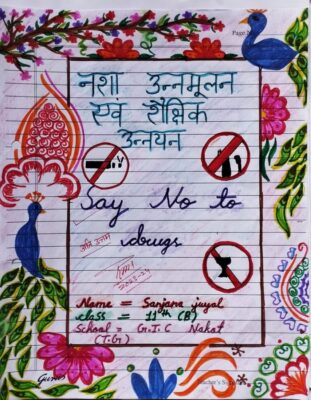 Page N
नशा उन्नमूलन
एवं शैक्षिक
उन्नयन
Say No to
drugs
अति उत्तम
2023-24
Name = Sanjana juyal
class = 11th (B)
School = G.I.C Nakot
(T.G)
Teacher's S